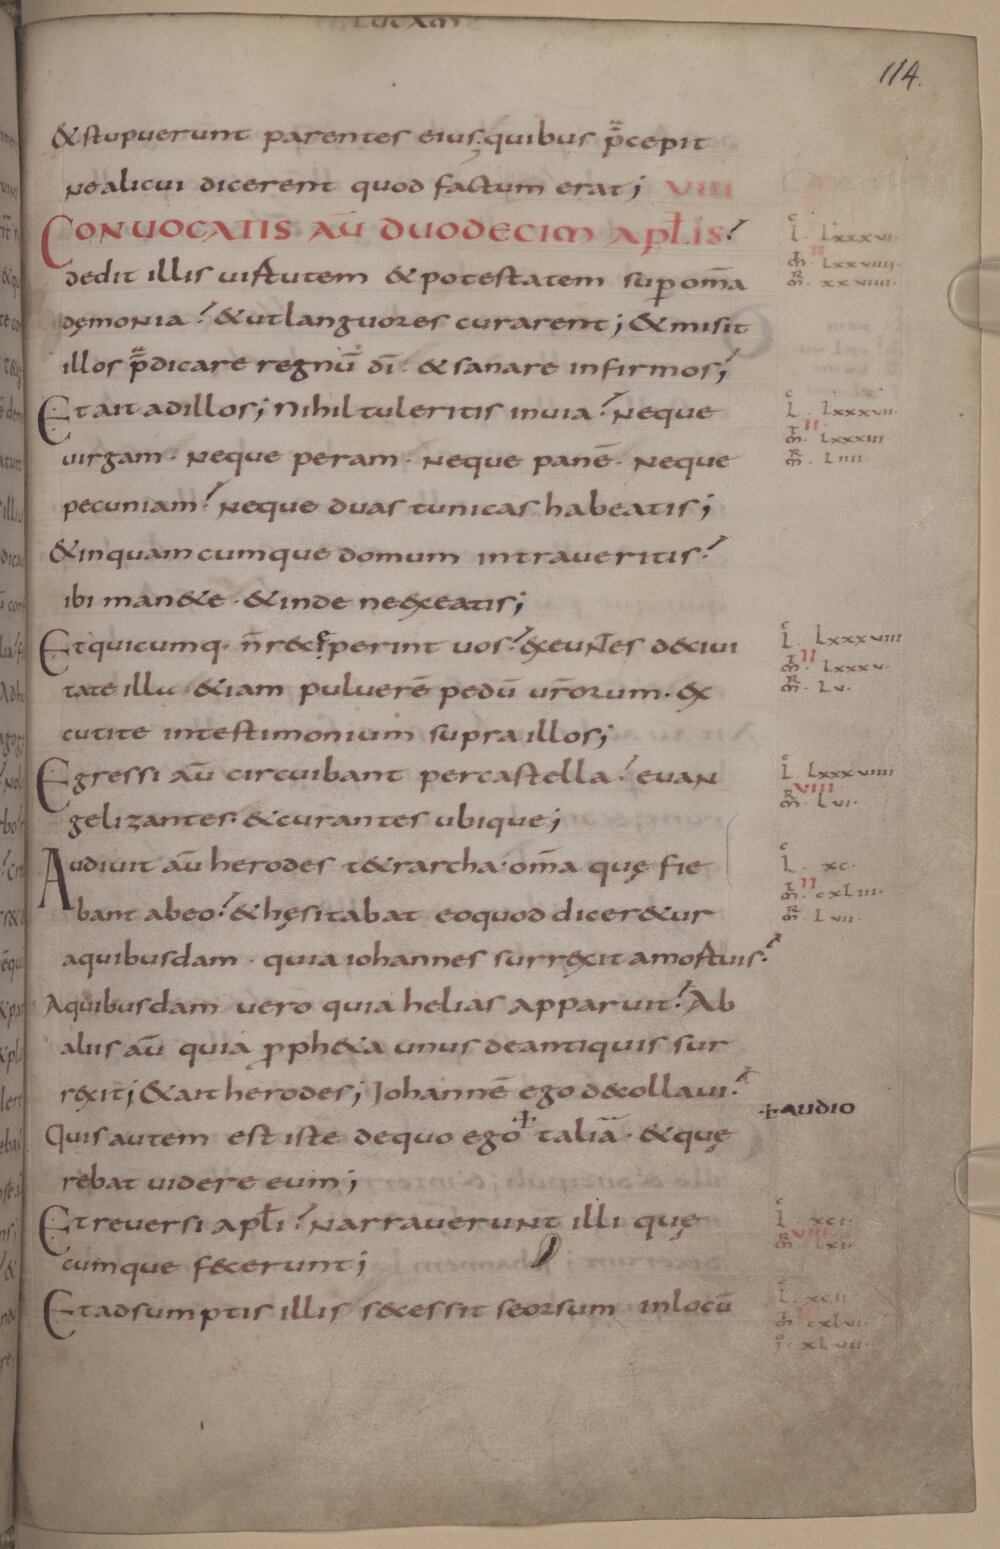 LUCAM
114.
&stupuerunt parentes eius. quibus p̄cepit
Ne alicui dicerent quod factum erat; VIIII
CONVOCATIS AŪ DUODECIM APŁIS:
dedit illis uirtutem & potestatem sup om̄a
dęmonia: & ut languores curarent; & misit
illos p̄dicare regnū dī. & sanare infirmos;
Et ait ad illos; Nihil tuleritis in uia: Neque
uirgam. Neque peram. Neque panē. Neque
pecuniam: Neque duas tunicas habeatis;
& in quamcumque domum intraueritis:
ibi man&e. & inde ne exeatis;
Et quicumq. n̄ receperint uos: exeuntes de ciui
tate illa &iam puluerē pedū ur̄orum. ex
cutite in testimonium supra illos;
Egressi aū circuibant per castella: euan
gelizantes. & curantes ubique;
Audiuit aū herodes t&rarcha. om̄a quę fie
bant ab eo: & hęsitabat eo quod dicer&ur
a quibusdam. quia iohannes surrexit a mortuis:
A quibusdam uero quia helias apparuit: Ab
aliis aū quia proph&a unus de antiquis sur
rexit; & ait herodes; Iohannē ego decollaui:
Quis autem est iste de quo ego ÷ talia. & quę
÷ AUDIO
rebat uidere eum;
Et reuersi apłi: Narrauerunt illi quę
cumque fecerunt;
Et adsumptis illis secessit seorsum in locū
L. Lxxxvi.
m̄. Lxxviiii.
m̄. xxviiii.
L. Lxxxvii.
II
m̄. Lxxxiii.
m̄. Liiii.
L. Lxxxviii
II
m̄. Lxxxv.
m̄. Lv.
L. Lxxxviiii
VIII
m̄. Lvi.
L. xc.
II
m̄. cxLiii.
m̄. Lvii.
L. xci.
VIII
m̄. Lxii.
L. xcii.
m̄. cxLvi.
i. xLvii.